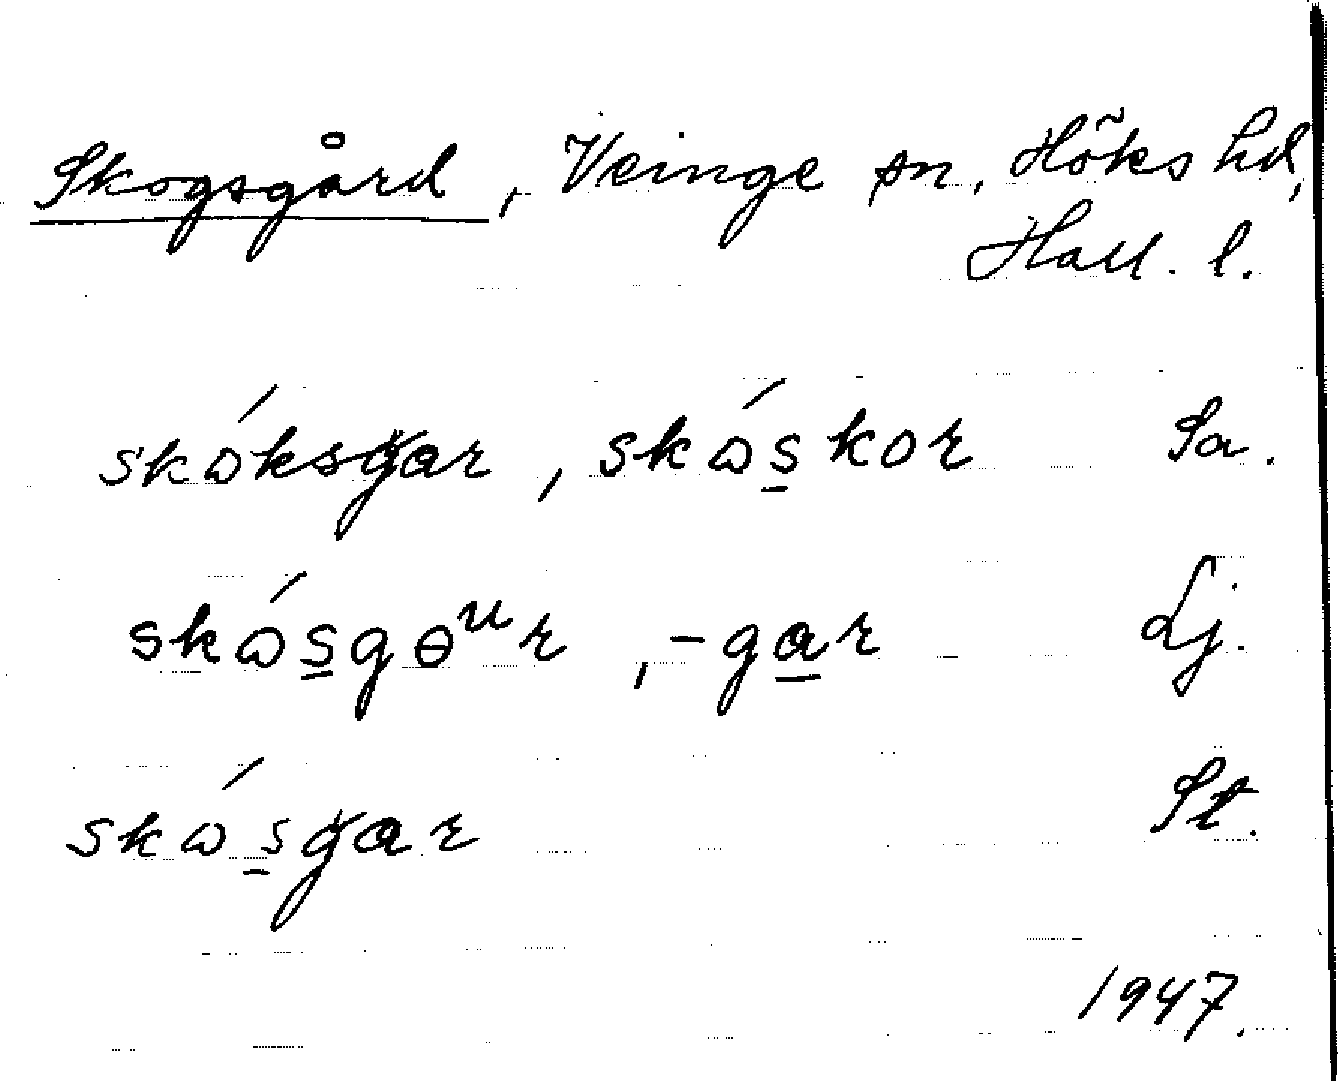 Skogsgård, Veinge sn, Höks hd,
Hall. l.
skɷ́ksgar, skɷ́s̲kor Sa.
skɷ́s̲gɵᵘr, -ga̲r Lj.
skɷ́s̲gar St.
1947.